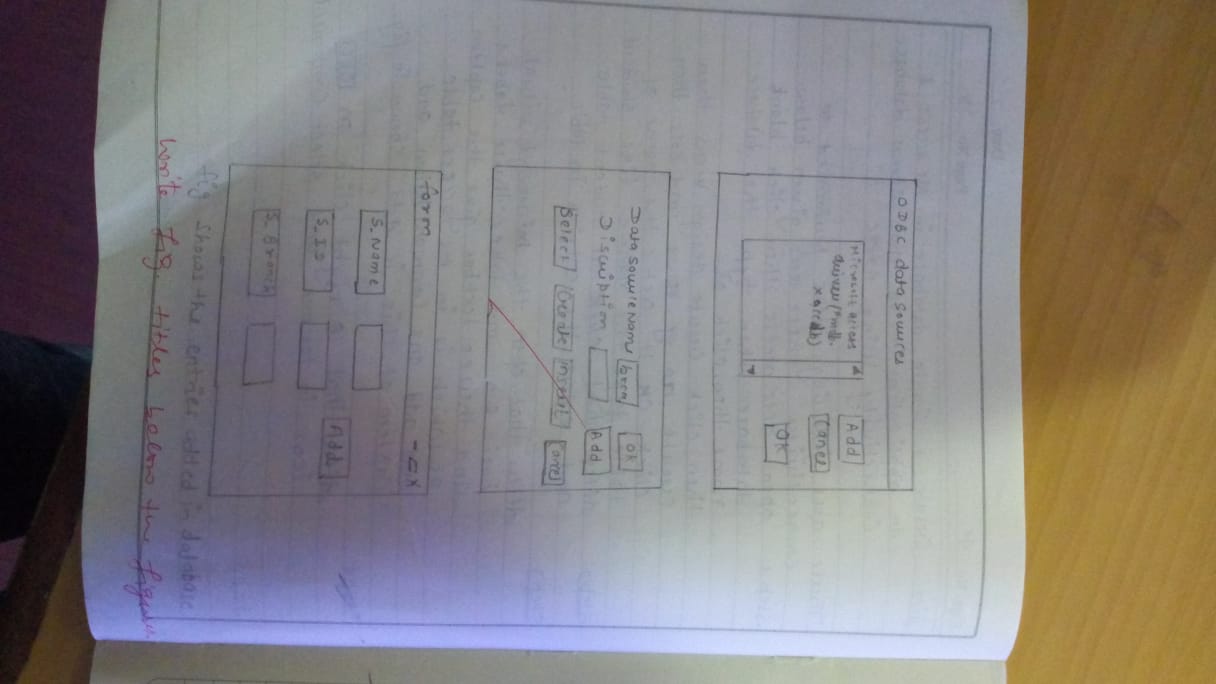 ODBC data sources
Microsoft access
driver (*mdb.
*accdb)
Add
Cancel
OK
Data source Name
form
OK
Discription
Add
Select
Create
Insert
Cancel
form
- □ x
S_Name
S_ID
Add
S_Branch
fig Shows the entries added in database
write fig titles below the figure